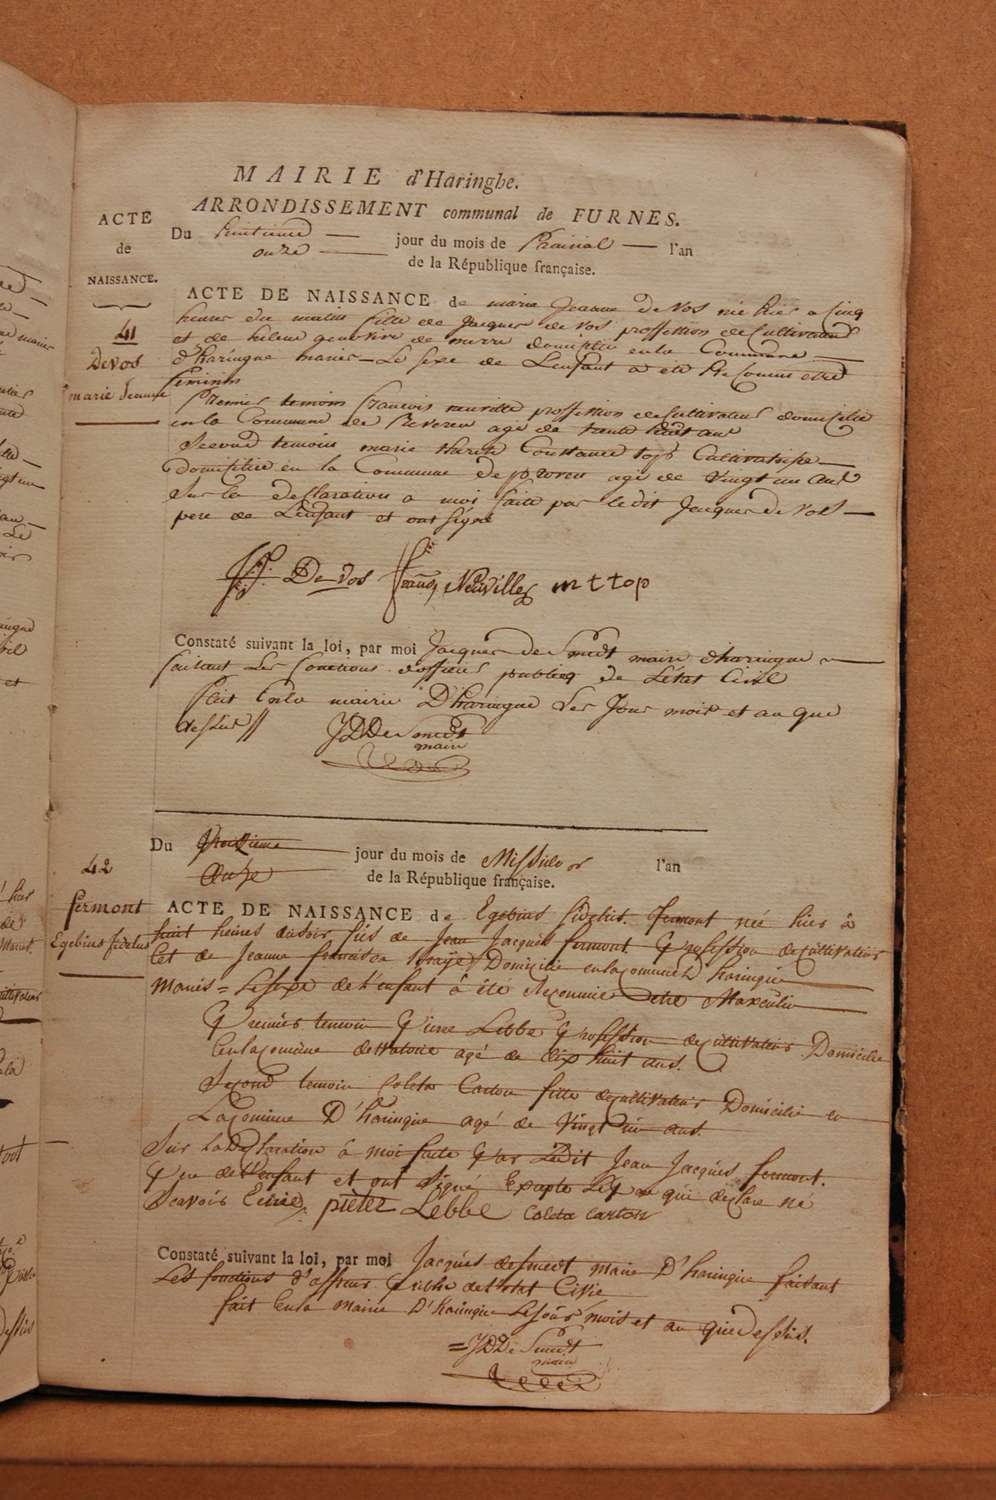 MAIRIE d'Haringhe.
ARRONDISSEMENT communal de FURNES.
ACTE
de
NAISSANCE.
41
De vos
marie Jeanne
Du jour du mois de Prairial l'an
onze de la République française.
ACTE DE NAISSANCE de marie Jeanne de vos né hier a cinq
heures du matin fille de Jacques de vos profession de Cultivateur
et de helene genevive de merre domicilie en la Commune
d'haringue mariés Le sexe de Lenfant a eté Reconnu etre
feminin
Premier temoin francois neuville profession de Cultivateur domicilie
en la Commune de age de trente huit ans
Second temoin marie therese Constance top Cultivatrice
domicilie en la Commune de age de vingt un ans
Sur la declaration a moi faite par ledit Jacques de vos
pere de Lenfant et ont signé
J: J: De vos frans Neuville m t top
Constaté suivant la loi, par moi Jacques de Smedt maire d'haringue
faisant Les fonctions d'officier publicq de L'état Civil
fait En la mairie D'haringue Les Jour mois et an que
dessus
JDDe Smedt
maire
42
fermont
Egebius fidelus
Du jour du mois de Messidor l'an
Onze de la République française.
ACTE DE NAISSANCE de Egebius fidelus fermont né hier à
huit heures du soir fils de Jean Jacques fermont Profession de cultivateur
et de Jeanne Domicilie en la comune D'haringue
Mariés = Le sexe de l'enfant à été Reconnue etre Masculin
Premier temoin Pierre Lebbe Profession de cultivateur Domicilie
en la comune de agé de dix huit ans.
Second temoin Coleta Carton fille de cultivateur Domicilie en
La Comune D'haringue agé de Vingt un ans.
Sur la Declaration à moi faite Par Ledit Jean Jacques fermont.
Pere de l'enfant et ont Signé Excepte Le Pere qui declare né
Scavoir Ecrire. pieter Lebbe Coleta carton
Constaté suivant la loi, par moi Jacques de smedt maire D'haringue faisant
Les fonctions d'officier Public de l'etat Civil
fait En la Mairie D'haringue Les jour mois et an que Dessus.
=JDDe Smedt
maire